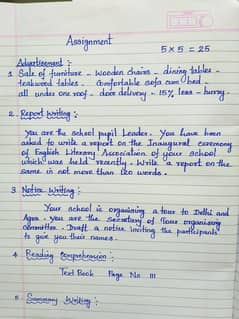 Assignment
5 x 5 = 25
Advertisement :-
1 Sale of furniture - wooden chairs - dining tables -
teakwood tables - comfortable sofa cum bed -
all under one roof - door delivery - 15% less - hurry.
2. Report Writing :-
You are the school pupil Leader. You have been
asked to write a report on the Inaugural ceremony
of English Literary Association of your school
which was held recently. Write a report on the
same in not more than 120 words.
3 Notice Writing :-
Your school is organising a tour to Delhi and
Agra. You are the secretary of Tour organising
committee. Draft a notice inviting the participants
to give you their names.
4 Reading Comprehension :-
Text Book Page No 111
5 Summary Writing :-